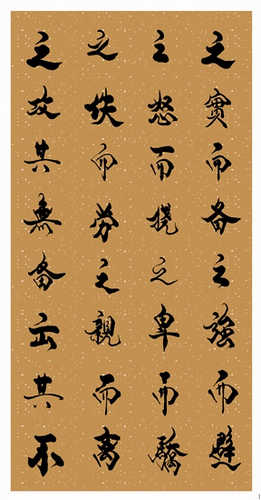 之實而备之強而避
之怒而撓之卑而驕
之佚而勞之親而离
之攻其無备出其不